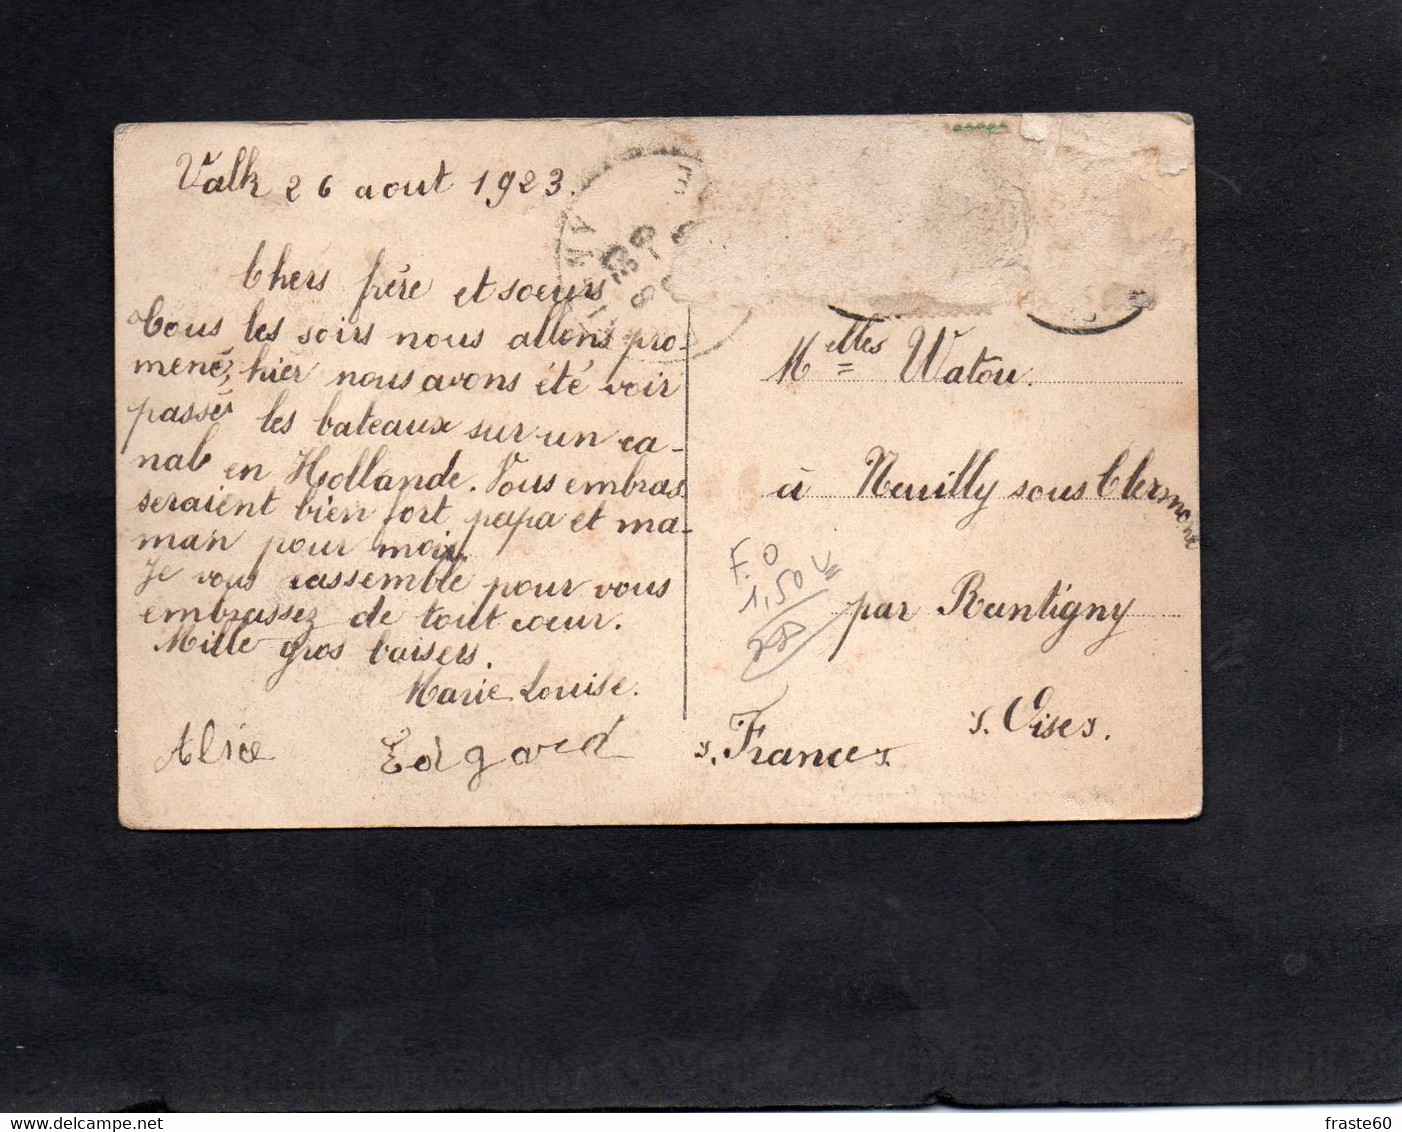 Valk 26 aout 1923.
Chers frére et soeurs
Tous les soirs nous allons pro-
mené, hier nous avons été voir
passér les bateaux sur un ca-
nal en Hollande. Vous embras
seraient bien fort papa et ma-
man pour moi.
Je vous rassemble pour vous
embrassez de tout coeur.
Mille gros baisers.
Marie Louise.
Alice Edgard
Melles Watou.
à Neuilly sous Clermont
par Rantigny
s. Oise s.
s. France s.
F.O
1,50
fraste60